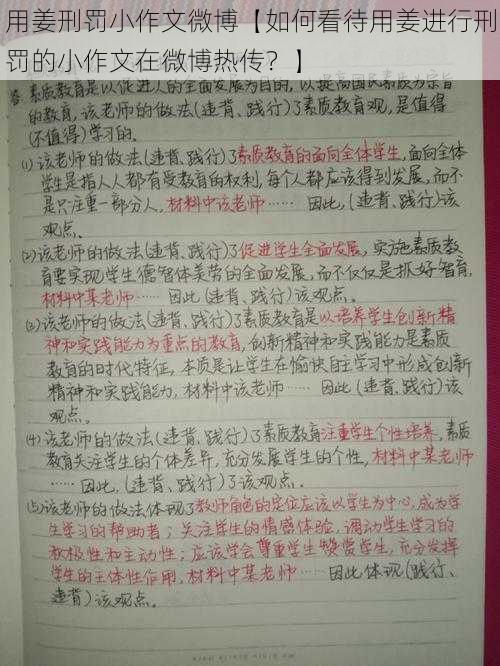 用姜刑罚小作文微博【如何看待用姜进行刑
罚的小作文在微博热传？】
答:素质教育是以促进人的全面发展为目的，以提高国民素质为宗旨
的教育，该老师的做法(违背、践行)了素质教育观，是值得
(不值得)学习的。
(1)该老师的做法(违背、践行)了素质教育的面向全体学生，面向全体
学生是指人人都有受教育的权利，每个人都应该得到发展，而不
是只注重一部分人，材料中该老师…… 因此，(违背、践行)该
观点。
(2)该老师的做法(违背、践行)了促进学生全面发展，实施素质教
育要实现学生德智体美劳的全面发展，而不仅仅是抓好智育，
材料中某老师…… 因此(违背、践行)该观点。
(3)该老师的做法(违背、践行)了素质教育是以培养学生创新精
神和实践能力为重点的教育，创新精神和实践能力是素质
教育的时代特征，本质是让学生在愉快自主学习中形成创新
精神和实践能力，材料中该老师…… 因此(违背、践行)该
观点。
(4)该老师的做法(违背、践行)了素质教育注重学生个性培养，素质
教育关注学生的个体差异，充分发展学生的个性，材料中某老师
……因此，(违背、践行)了该观点。
(5)该老师的做法体现了教师角色的定位应该以学生为中心，成为学
生学习的帮助者；关注学生的情感体验，调动学生学习的
积极性和主动性；应该学会尊重学生赞赏学生，充分发挥
学生的主体性作用，材料中某老师……因此体现(践行、
违背)该观点。